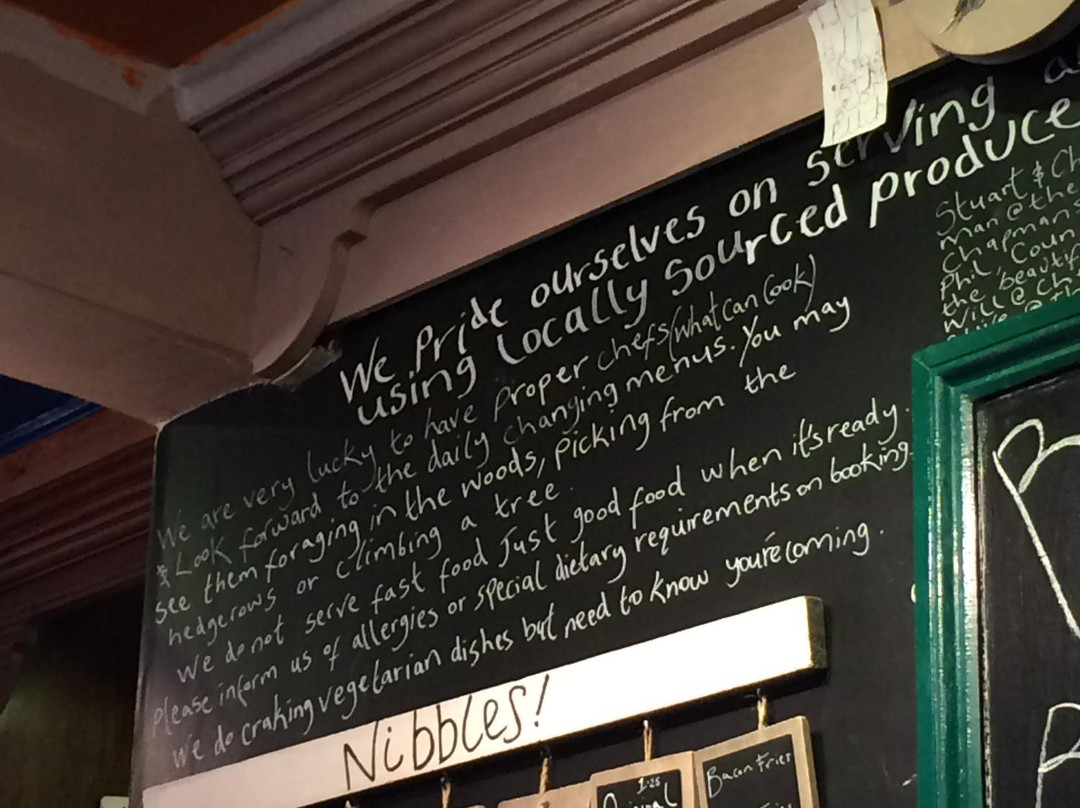 We Pride ourselves on serving
using Locally Sourced produce
We are very lucky to have Proper chefs (what can Cook)
& Look forward to the daily changing menus. You may
see them foraging in the woods, picking from the
hedgerows or climbing a tree.
We do not serve fast food Just good food when it's ready.
Please inform us of allergies or special dietary requirements on booking.
We do craking vegetarian dishes but need to know you're coming.
Stuart & Ch
man @ the
Chapmans
Phil Coun
the beautif
Will @ Ch
Nibbles!
1.25
Original
Bacon Fries